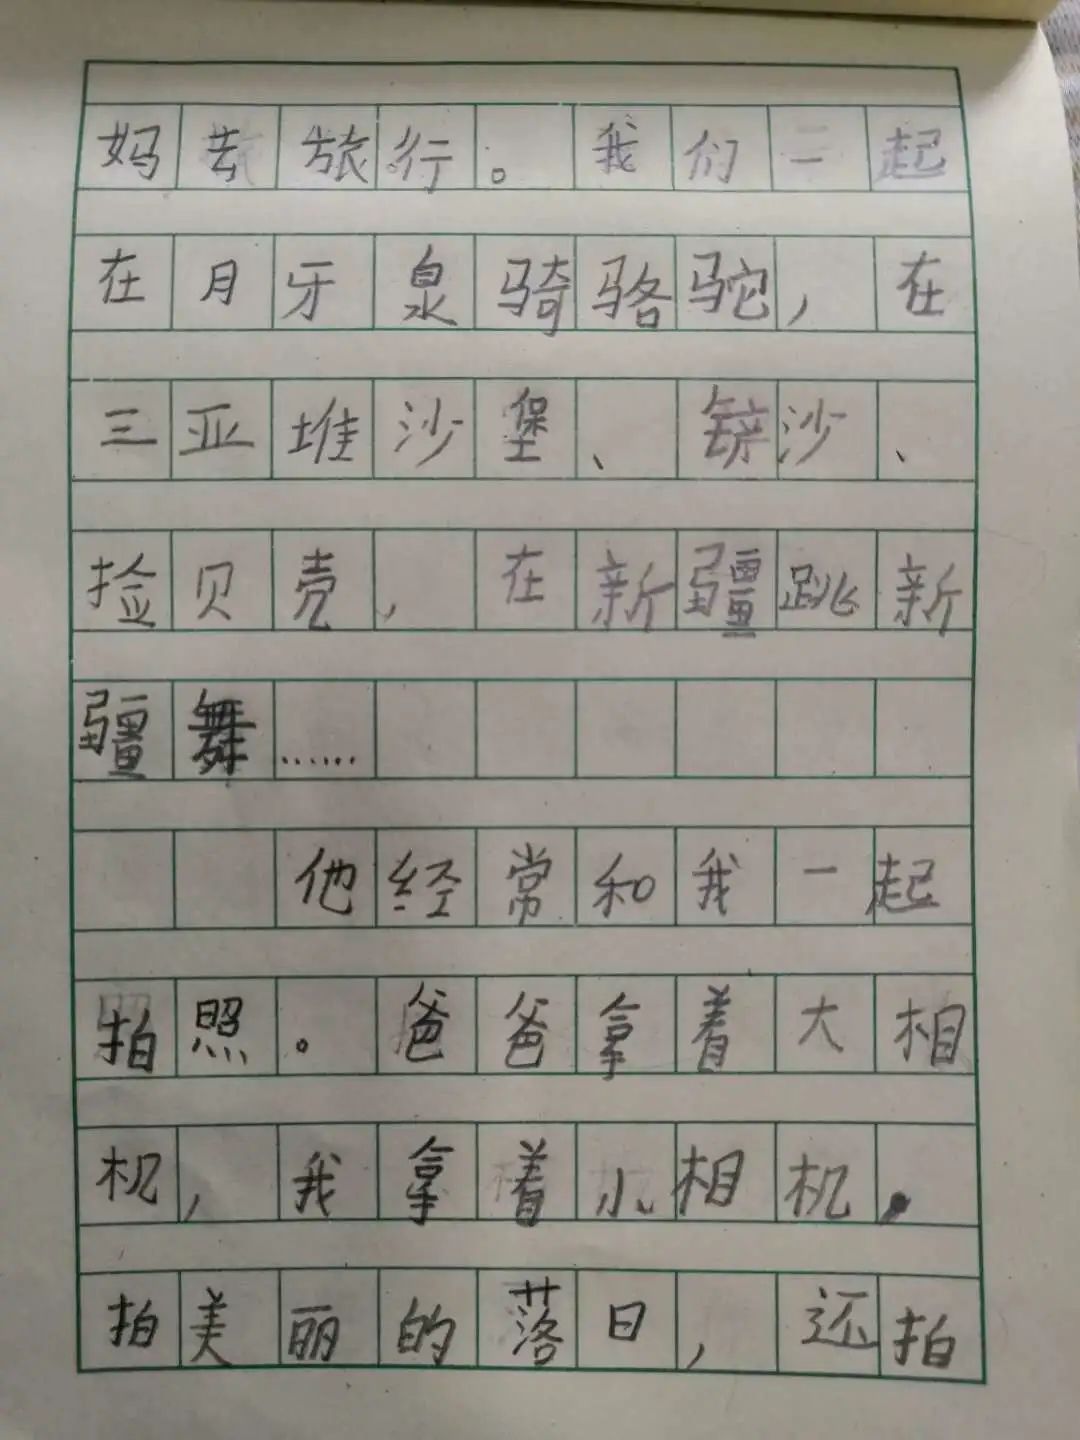 妈去旅行。我们一起
在月牙泉骑骆驼，在
三亚堆沙堡、铲沙、
捡贝壳，在新疆跳新
疆舞……
他经常和我一起
拍照。爸爸拿着大相
机，我拿着小相机，
拍美丽的落日，还拍